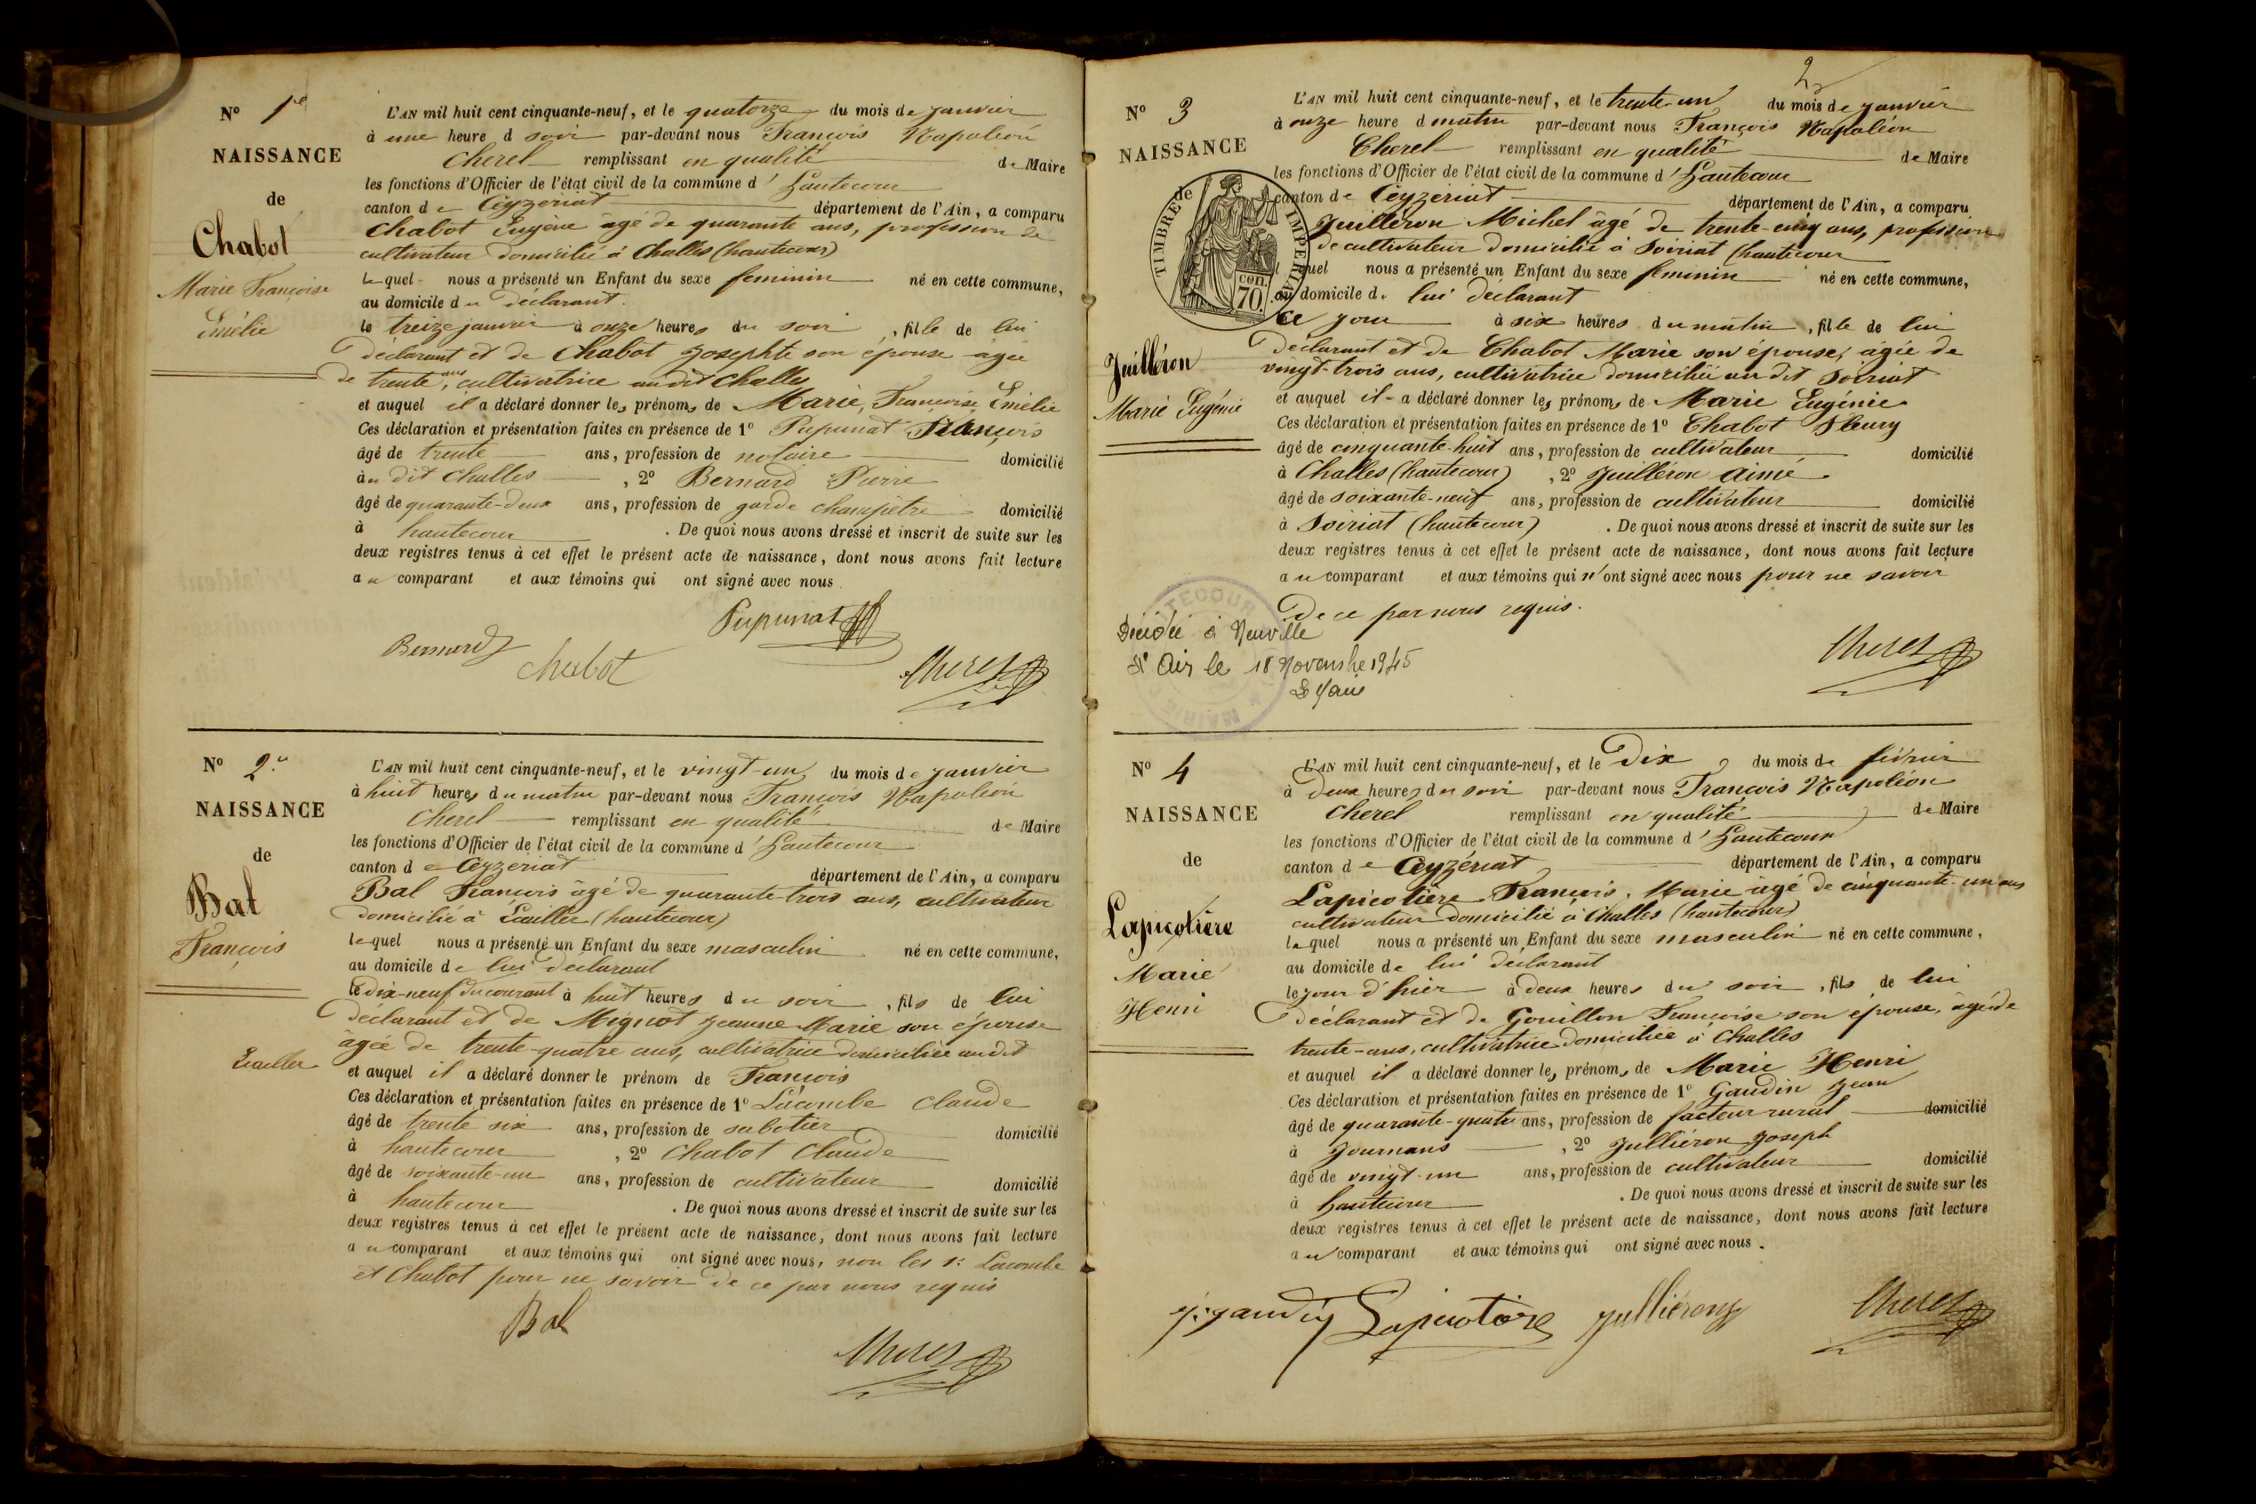 N° 1er
NAISSANCE
de
Chabot
Marie Françoise
Emélie
L'AN mil huit cent cinquante-neuf, et le quatorze du mois de janvier
à une heure d soir par-devant nous François Napoléon
Cherel remplissant en qualité de Maire
les fonctions d'Officier de l'état civil de la commune d'hautecour
canton de Ceyzeriat département de l'Ain, a comparu
Chabot Eugène âgé de quarante ans, profession de
cultivateur domicilié à Challes (hautecour)
lequel nous a présenté un Enfant du sexe feminin né en cette commune,
au domicile du déclarant.
le treize janvier à onze heures du soir, fille de lui
déclarant et de Chabot Josephte son épouse âgée
de trente ans, cultivatrice audit Challes
et auquel il a déclaré donner les prénoms de Marie, Françoise Emélie
Ces déclaration et présentation faites en présence de 1° Pupunat François
âgé de trente ans, profession de notaire domicilié
au dit Challes, 2° Bernard Pierre
âgé de quarante-deux ans, profession de garde champêtre domicilié
à hautecour. De quoi nous avons dressé et inscrit de suite sur les
deux registres tenus à cet effet le présent acte de naissance, dont nous avons fait lecture
au comparant et aux témoins qui ont signé avec nous
Pupunat
Bernard
Chabot
Cherel
N° 2e
NAISSANCE
de
Bal
François
Ecailler
L'AN mil huit cent cinquante-neuf, et le vingt-un du mois de janvier
à huit heures du matin par-devant nous François Napoléon
Cherel remplissant en qualité de Maire
les fonctions d'Officier de l'état civil de la commune d'hautecour
canton de Ceyzeriat département de l'Ain, a comparu
Bal François âgé de quarante-trois ans, cultivateur
domicilié à Ecailler (hautecour)
lequel nous a présenté un Enfant du sexe masculin né en cette commune,
au domicile de lui déclarant
le dix-neuf du courant à huit heures du soir, fils de lui
déclarant et de Mignot Jeanne Marie son épouse
âgée de trente-quatre ans, cultivatrice domiciliée audit
et auquel il a déclaré donner le prénom de François
Ces déclaration et présentation faites en présence de 1° Lacombe Claude
âgé de trente six ans, profession de sabotier domicilié
à hautecour, 2° Chabot Claude
âgé de soixante-un ans, profession de cultivateur domicilié
à hautecour. De quoi nous avons dressé et inscrit de suite sur les
deux registres tenus à cet effet le présent acte de naissance, dont nous avons fait lecture
au comparant et aux témoins qui ont signé avec nous, non les s. Lacombe
et Chabot pour ne savoir de ce par nous requis
Bal
Cherel
2
N° 3
NAISSANCE
de
TIMBRE IMPERIAL
CEN.
70.
Juilléron
Marie Eugénie
L'AN mil huit cent cinquante-neuf, et le trente-un du mois de janvier
à onze heure d matin par-devant nous François Napoléon
Cherel remplissant en qualité de Maire
les fonctions d'Officier de l'état civil de la commune d'hautecour
canton de Ceyzériat département de l'Ain, a comparu
Juilléron Michel âgé de trente-cinq ans, profession
de cultivateur domicilié à Soiriat (hautecour
lequel nous a présenté un Enfant du sexe feminin né en cette commune,
au domicile de lui déclarant
Ce jour à six heures du matin, fille de lui
déclarant et de Chabot Marie son épouse, âgée de
vingt-trois ans, cultivatrice domiciliée au dit Soiriat
et auquel il a déclaré donner les prénoms de Marie Eugénie
Ces déclaration et présentation faites en présence de 1° Chabot Fleury
âgé de cinquante-huit ans, profession de cultivateur domicilié
à Challes (hautecour), 2° Juilléron Aimé
âgé de soixante-neuf ans, profession de cultivateur domicilié
à Soiriat (hautecour). De quoi nous avons dressé et inscrit de suite sur les
deux registres tenus à cet effet le présent acte de naissance, dont nous avons fait lecture
au comparant et aux témoins qui n'ont signé avec nous pour ne savoir
de ce par nous requis.
Décédée à Neuville
s/ Ain le 18 Novembre 1945
Cherel
MAIRIE HAUTECOUR
N° 4
NAISSANCE
de
Lapicotière
Marie
Henri
L'AN mil huit cent cinquante-neuf, et le dix du mois de février
à deux heures du soir par-devant nous François Napoléon
Cherel remplissant en qualité de Maire
les fonctions d'Officier de l'état civil de la commune d'hautecour
canton de Ceyzériat département de l'Ain, a comparu
Lapicotière François, Marie âgé de cinquante-un ans
cultivateur domicilié à Challes (hautecour)
lequel nous a présenté un Enfant du sexe masculin né en cette commune,
au domicile de lui déclarant
le jour d'hier à deux heures du soir, fils de lui
déclarant et de Gouillon Françoise son épouse, âgée de
trente-ans, cultivatrice domiciliée à Challes
et auquel il a déclaré donner les prénoms de Marie Henri
Ces déclaration et présentation faites en présence de 1° Gaudin Jean
âgé de quarante-quatre ans, profession de facteur rural domicilié
à Journans, 2° Julliéron Joseph
âgé de vingt-un ans, profession de cultivateur domicilié
à hautecour. De quoi nous avons dressé et inscrit de suite sur les
deux registres tenus à cet effet le présent acte de naissance, dont nous avons fait lecture
au comparant et aux témoins qui ont signé avec nous.
j. gaudin Lapicotière Julliéron Cherel